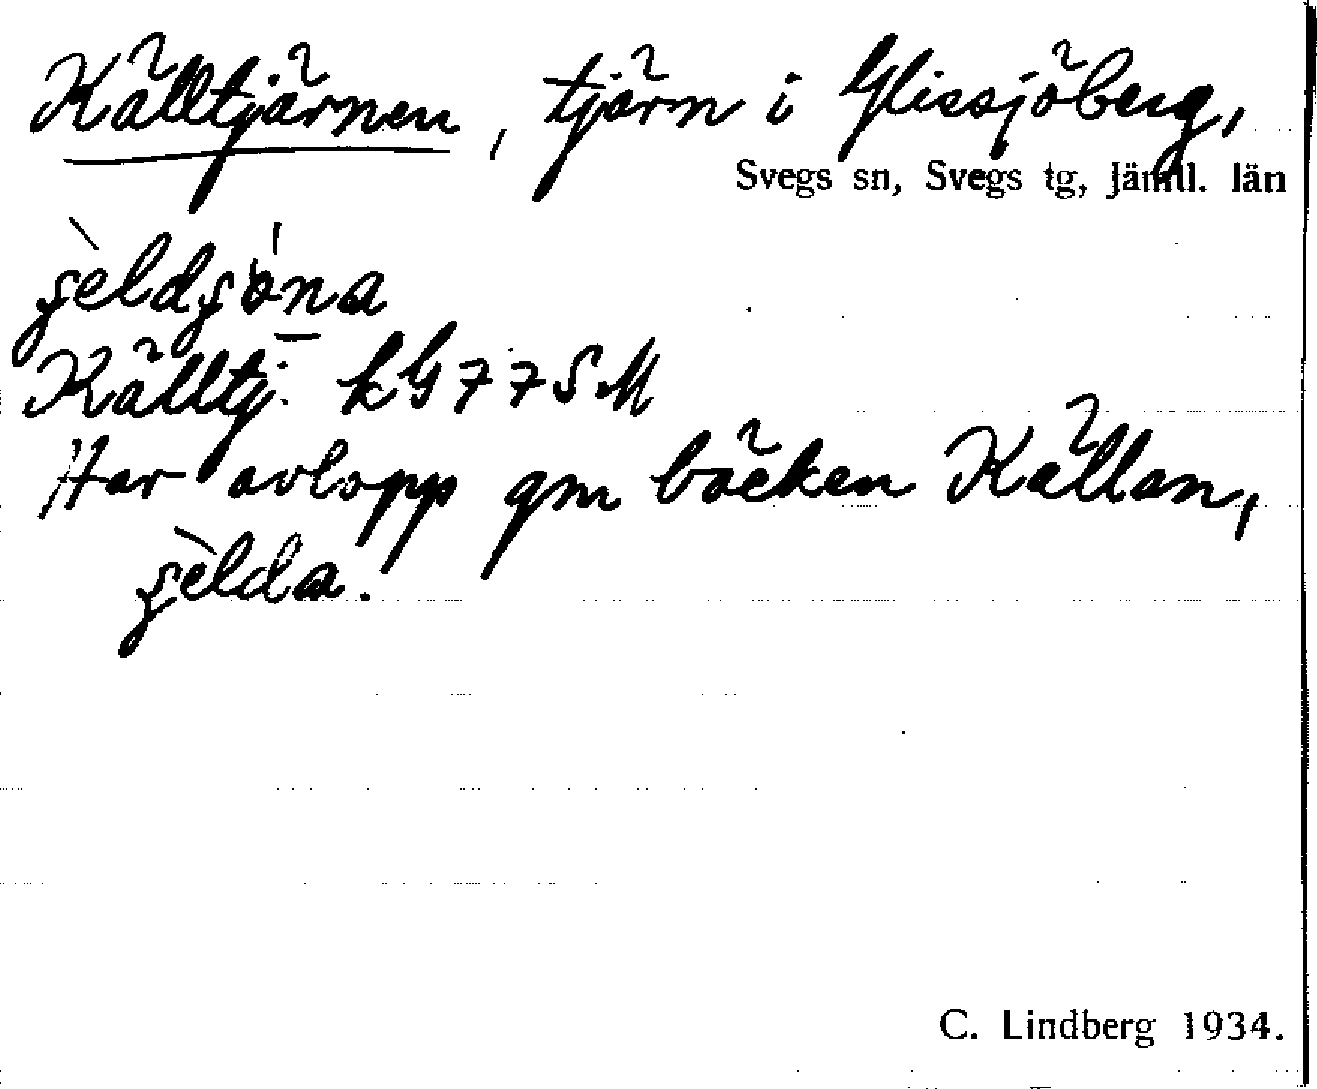 Källtjärnen, tjärn i Glissjöberg,
Svegs sn, Svegs tg, Jämtl. län
Källtj. kG 77 SM
Har avlopp gm bäcken Källan,
C. Lindberg 1934.